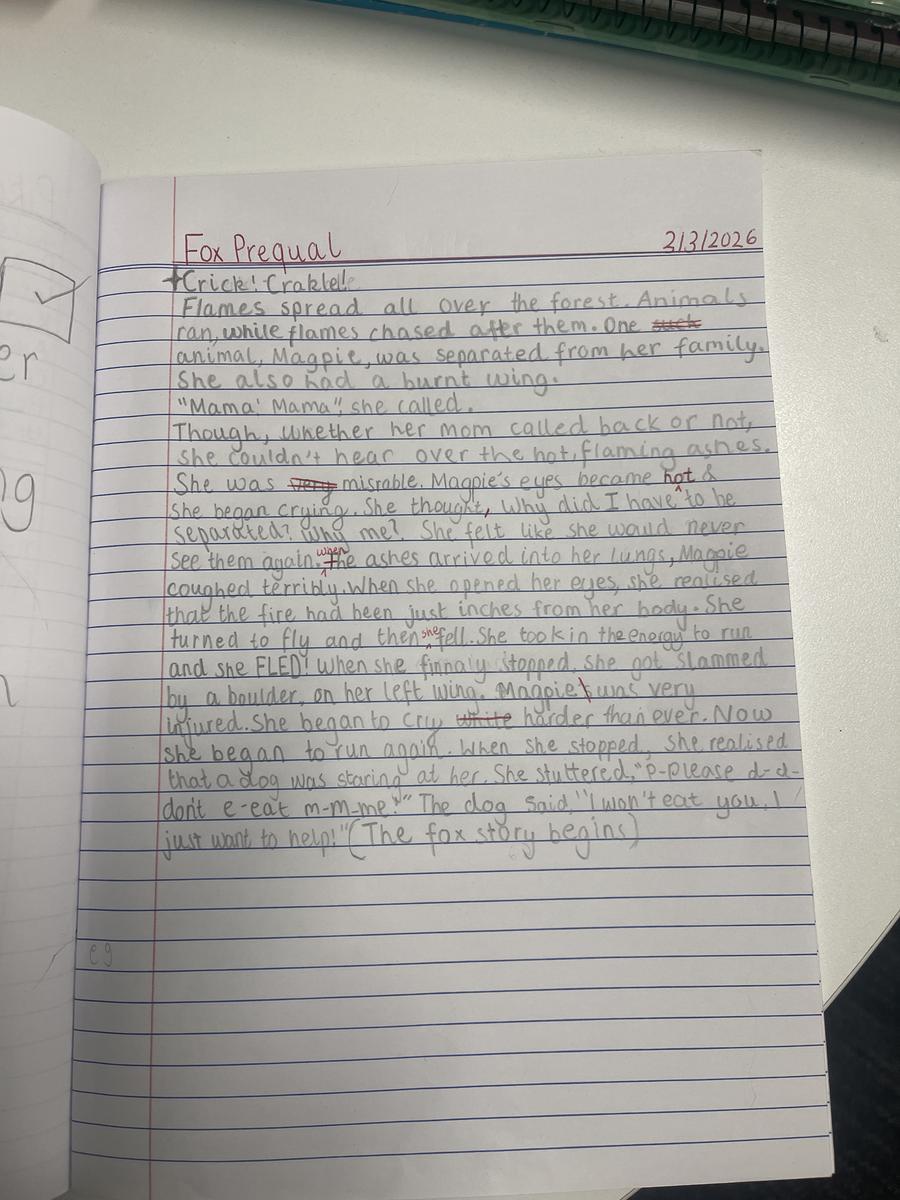 Fox Prequal 3/3/2026
Crick! Crakle!!
Flames spread all over the forest. Animals
ran, while flames chased after them. One such
animal, Magpie, was separated from her family.
She also had a burnt wing.
"Mama! Mama", she called.
Though, whether her mom called back or not,
she couldn't hear over the hot, flaming ashes.
She was very misrable. Magpie's eyes became hot &
she began crying. She thought, Why did I have to be
separated? Why me? She felt like she would never
see them again. when The ashes arrived into her lungs, Magpie
coughed terribly. When she opened her eyes, she realised
that the fire had been just inches from her body. She
turned to fly and then she fell. She took in the energy to run
and she FLED! When she finnaly stopped, she got slammed
by a boulder, on her left wing. Magpie was very
injured. She began to cry white harder than ever. Now
she began to run again. When she stopped, she realised
that a dog was staring at her. She stuttered, "P-please d-d-
don't e-eat m-m-me!" The dog said, "I won't eat you, I
just want to help!" (The fox story begins)
er
ng
eg